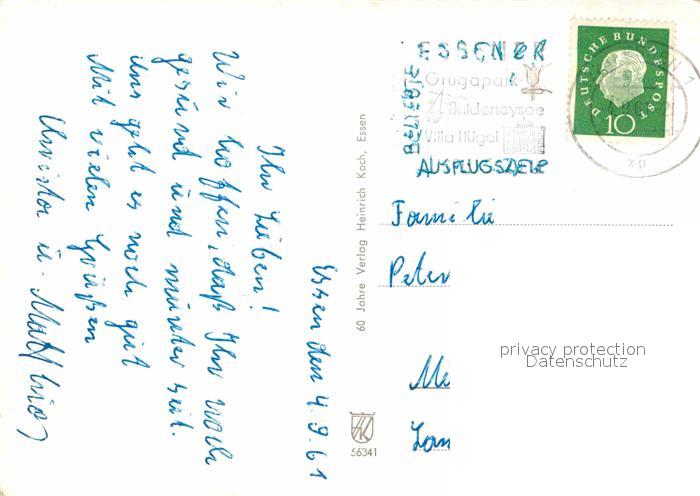 Essen den 4.9.61
Ihr Lieben!
Wir hoffen, daß Ihr noch
gesund und munter seit.
Uns geht es noch gut
Mit vielen Grüßen
Christa u. Matthias
60 Jahre Verlag Heinrich Koch, Essen
56341
BELIEBTE
ESSENER
Grugapark
Baldeneysee
Villa Hügel
AUSFLUGSZIELE
DEUTSCHE BUNDESPOST
10
xp
Familie
Peter
privacy protection
Datenschutz